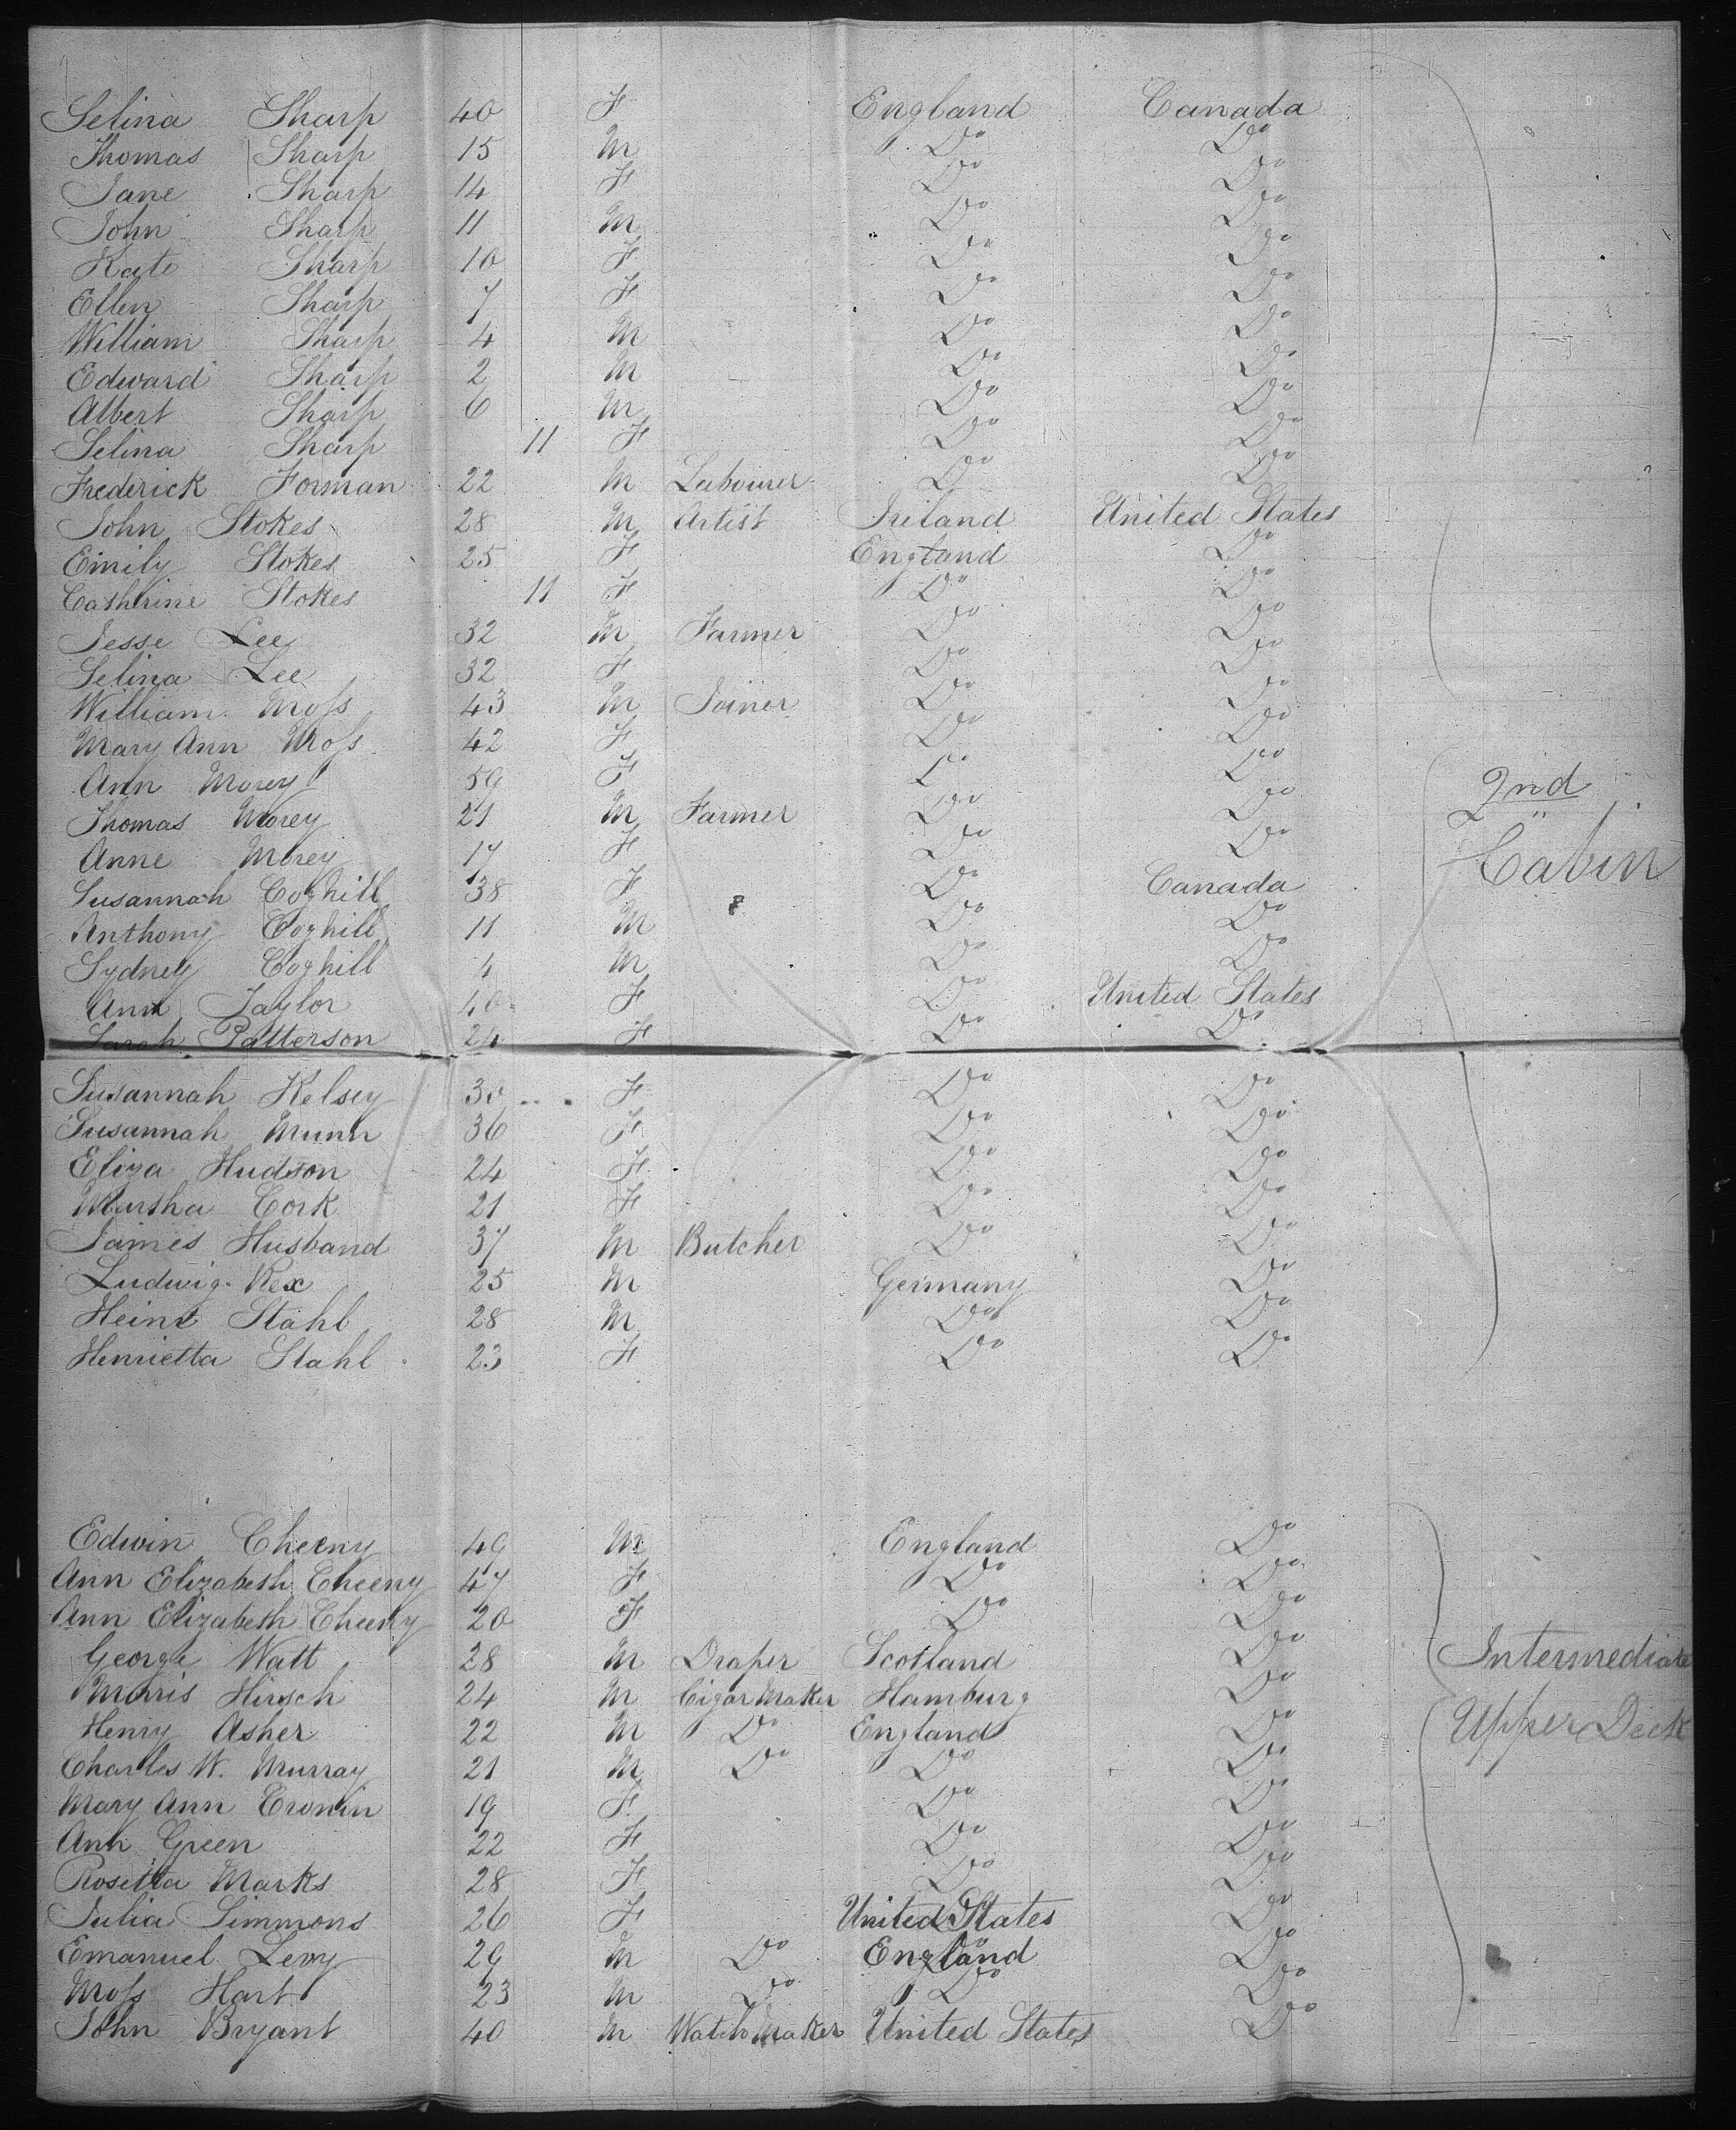 Selina Sharp 40 F England Canada
Thomas Sharp 15 M Do Do
Jane Sharp 14 F Do Do
John Sharp 11 M Do Do
Kate Sharp 10 F Do Do
Ellen Sharp 7 F Do Do
William Sharp 4 M Do Do
Edward Sharp 2 M Do Do
Albert Sharp 6 M Do Do
Selina Sharp 11 F Do Do
Frederick Forman 22 M Labourer Do Do
John Stokes 28 M Artist Ireland United States
Emily Stokes 25 F England Do
Cathrine Stokes 11 F Do Do
Jesse Lee 32 M Farmer Do Do
Selina Lee 32 F Do Do
William Moss 43 M Joiner Do Do
Mary Ann Moss 42 F Do Do
Ann Morey 59 F Do Do 2nd
Thomas Morey 21 M Farmer Do Do
Anne Morey 17 F Do Do Cabin
Susannah Coghill 38 F Do Canada
Anthony Coghill 11 M Do Do
Sydney Coghill 4 M Do Do
Ann Taylor 40 F Do United States
Sarah Patterson 24 F Do Do
Susannah Kelsey 30 F Do Do
Susannah Munn 36 F Do Do
Eliza Hudson 24 F Do Do
Martha Cork 21 F Do Do
James Husband 37 M Butcher Do Do
Ludwig Rex 25 M Germany Do
Heint Stahl 28 M Do Do
Henrietta Stahl 23 F Do Do
Edwin Cheeny 49 M England Do
Ann Elizabeth Cheeny 47 F Do Do
Ann Elizabeth Cheeny 20 F Do Do
George Watt 28 M Draper Scotland Do Intermediate
Morris Hirsch 24 M Cigar Maker Hamburg Do
Henry Asher 22 M Do England Do Upper Deck
Charles W. Murray 21 M Do Do Do
Mary Ann Cronin 19 F Do Do
Ann Green 22 F Do Do
Rosetta Marks 28 F Do Do
Julia Simmons 26 F United States Do
Emanuel Levy 29 M Do England Do
Moss Hart 23 M Do Do Do
John Bryant 40 M Watch Maker United States Do